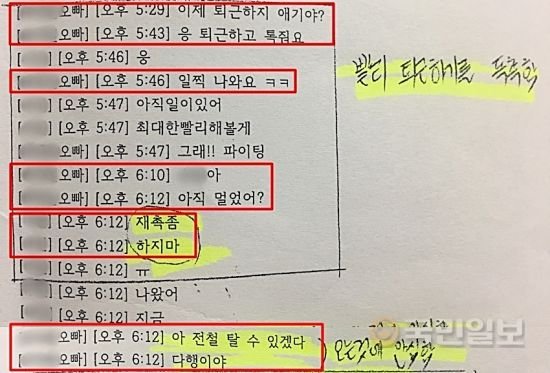 오빠] [오후 5:29] 이제 퇴근하지 애기야?
오빠] [오후 5:43] 응 퇴근하고 톡줘요
[오후 5:46] 웅
오빠] [오후 5:46] 일찍 나와요 ㅋㅋ
[오후 5:47] 아직일이있어
[오후 5:47] 최대한빨리해볼게
오빠] [오후 5:47] 그래!! 파이팅
오빠] [오후 6:10] 아
오빠] [오후 6:12] 아직 멀었어?
[오후 6:12] 재촉좀
[오후 6:12] 하지마
[오후 6:12] ㅠ
[오후 6:12] 나왔어
[오후 6:12] 지금
오빠] [오후 6:12] 아 전철 탈 수 있겠다
오빠] [오후 6:12] 다행이야
빨리 퇴근하기를
국민일보